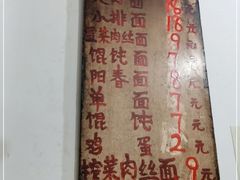 小排面18元
雪菜肉丝面9元
馄饨面7元
阳春面8元
单面7元
馄饨7元
鸡蛋2元
榨菜肉丝面9元